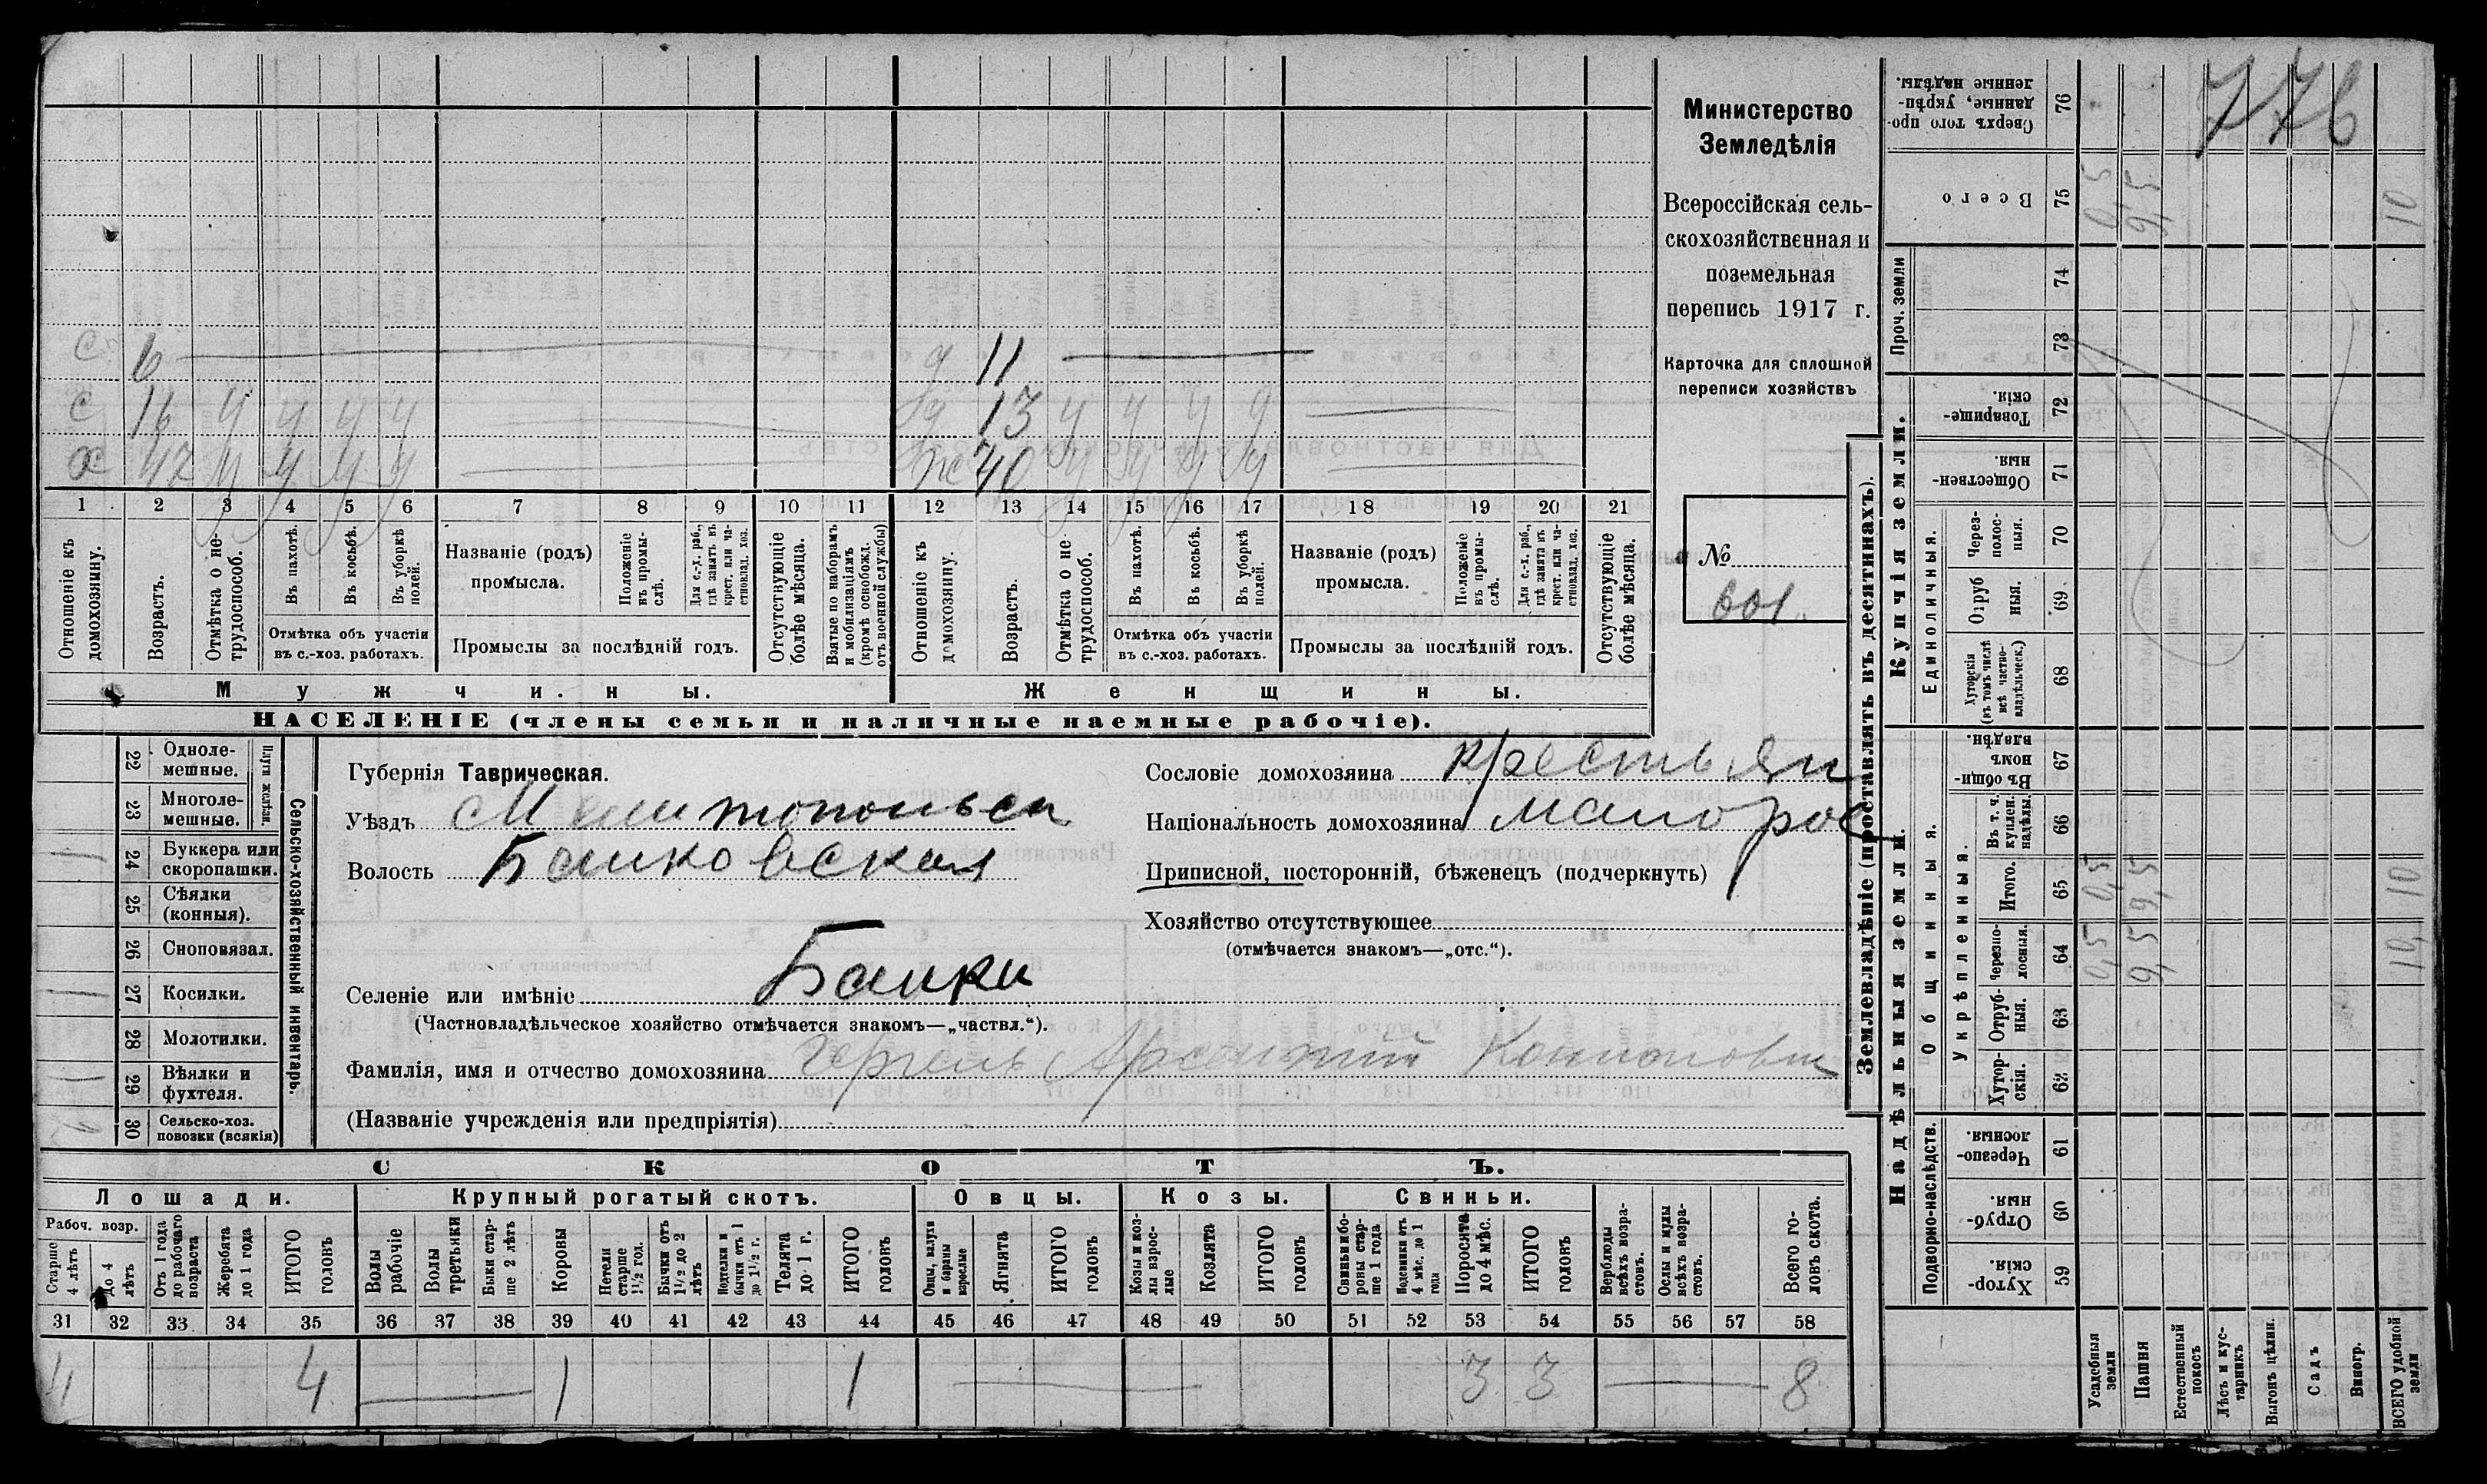 776
Министерство
Земледѣлія
Всероссійская сель-
скохозяйственная и
поземельная
перепись 1917 г.
Карточка для сплошной
переписи хозяйствъ
№
601
с 6 д 11
с 16 ч ч ч ч д 13 ч ч ч ч
х 47 ч ч ч ч ж 40 ч ч ч ч
1 2 3 4 5 6 7 8 9 10 11 12 13 14 15 16 17 18 19 20 21
Отношеніе къ домохозяину.
Возрастъ.
Отмѣтка о не-трудоспособ.
Въ пахотѣ.
Въ косьбѣ.
Въ уборкѣ полей.
Отмѣтка объ участіи
въ с.-хоз. работахъ.
Названіе (родъ)
промысла.
Положеніе въ промы-слѣ.
Для с.-х. раб., гдѣ занятъ въ крест. или ча-стновлад. хоз.
Промыслы за послѣдній годъ.
Отсутствующіе болѣе мѣсяца.
Взятые по наборамъ и мобилизаціямъ (кромѣ освобожд. отъ военной службы)
Отношеніе къ домохозяину.
Возрастъ.
Отмѣтка о не-трудоспособ.
Въ пахотѣ.
Въ косьбѣ.
Въ уборкѣ полей.
Отмѣтка объ участіи
въ с.-хоз. работахъ.
Названіе (родъ)
промысла.
Положеніе въ промы-слѣ.
Для с.-х. раб., гдѣ занята въ крест. или ча-стновлад. хоз.
Промыслы за послѣдній годъ.
Отсутствующіе болѣе мѣсяца.
Мужчины. Женщины.
НАСЕЛЕНІЕ (члены семьи и наличные наемные рабочіе).
Сельско-хозяйственный инвентарь.
Плуги желѣзн.
22 Одноле-мешные.
23 Многоле-мешные.
24 Буккера или скоропашки. 1
25 Сѣялки (конныя).
26 Сноповязал.
27 Косилки. 1
28 Молотилки.
29 Вѣялки и фухтеля. 1
30 Сельско-хоз. повозки (всякія)
Губернія Таврическая.
Уѣздъ Мелитопольск
Волость Балковская
Селеніе или имѣніе Балки
(Частновладѣльческое хозяйство отмѣчается знакомъ—„частвл.“).
Фамилія, имя и отчество домохозяина Гергель Арсентий Кононович
(Названіе учрежденія или предпріятія)
Сословіе домохозяина крестьян
Національность домохозяина малорос
Приписной, посторонній, бѣженецъ (подчеркнуть)
Хозяйство отсутствующее
(отмѣчается знакомъ—„отс.“).
СКОТЪ.
Лошади. Крупный рогатый скотъ. Овцы. Козы. Свиньи.
Рабоч. возр.
Старше 4 лѣтъ
До 4 лѣтъ
Отъ 1 года до рабочаго возраста
Жеребята до 1 года
ИТОГО головъ
Волы рабочіе
Волы третьяки
Быки стар-ше 2 лѣтъ
Коровы
Нетели старше 1½ год.
Бычки отъ 1½ до 2 лѣтъ
Подтелки и бычки отъ 1 до 1½ г.
Телята до 1 г.
ИТОГО головъ
Овцы, валухи и бараны взрослые
Ягнята
ИТОГО головъ
Козы и коз-лы взрос-лые
Козлята
ИТОГО головъ
Свиньи и бо-ровы стар-ше 1 года
Подсвинки отъ 4 мѣс. до 1 года
Поросята до 4 мѣс.
ИТОГО головъ
Верблюды всѣхъ возра-стовъ.
Ослы и мулы всѣхъ возра-стовъ.
Всего го-ловъ скота.
31 32 33 34 35 36 37 38 39 40 41 42 43 44 45 46 47 48 49 50 51 52 53 54 55 56 57 58
4 4 1 1 3 3 8
Землевладѣніе (проставлять въ десятинахъ).
Надѣльныя земли. Купчія земли. Проч. земли
Подворно-наслѣдств.
Общинныя.
Укрѣпленныя.
Единоличныя.
Сверхъ того про-данные, укрѣп-ленные надѣлы. 76
Всего 75 0,5 9,5 10
74
73
Товарище-скія. 72
Обществен-ныя. 71
Через-полос-ныя. 70
Отруб ныя. 69
Хуторскія (въ томъ числѣ всѣ частно-владѣльческ.) 68
Въ общин-номъ владѣн. 67
Въ т. ч. куплен. надѣлы. 66
Итого. 65 0,5 9,5 10
Черезпо-лосныя. 64 0,5 9,5 10
Отруб-ныя. 63
Хутор-скія. 62
Черезпо-лосныя. 61
Отруб-ныя. 60
Хутор-скія. 59
Усадебныя земли
Пашня
Естественный покосъ
Лѣсъ и кус-тарникъ
Выгонъ цѣлин.
Садъ
Виногр.
ВСЕГО удобной земли